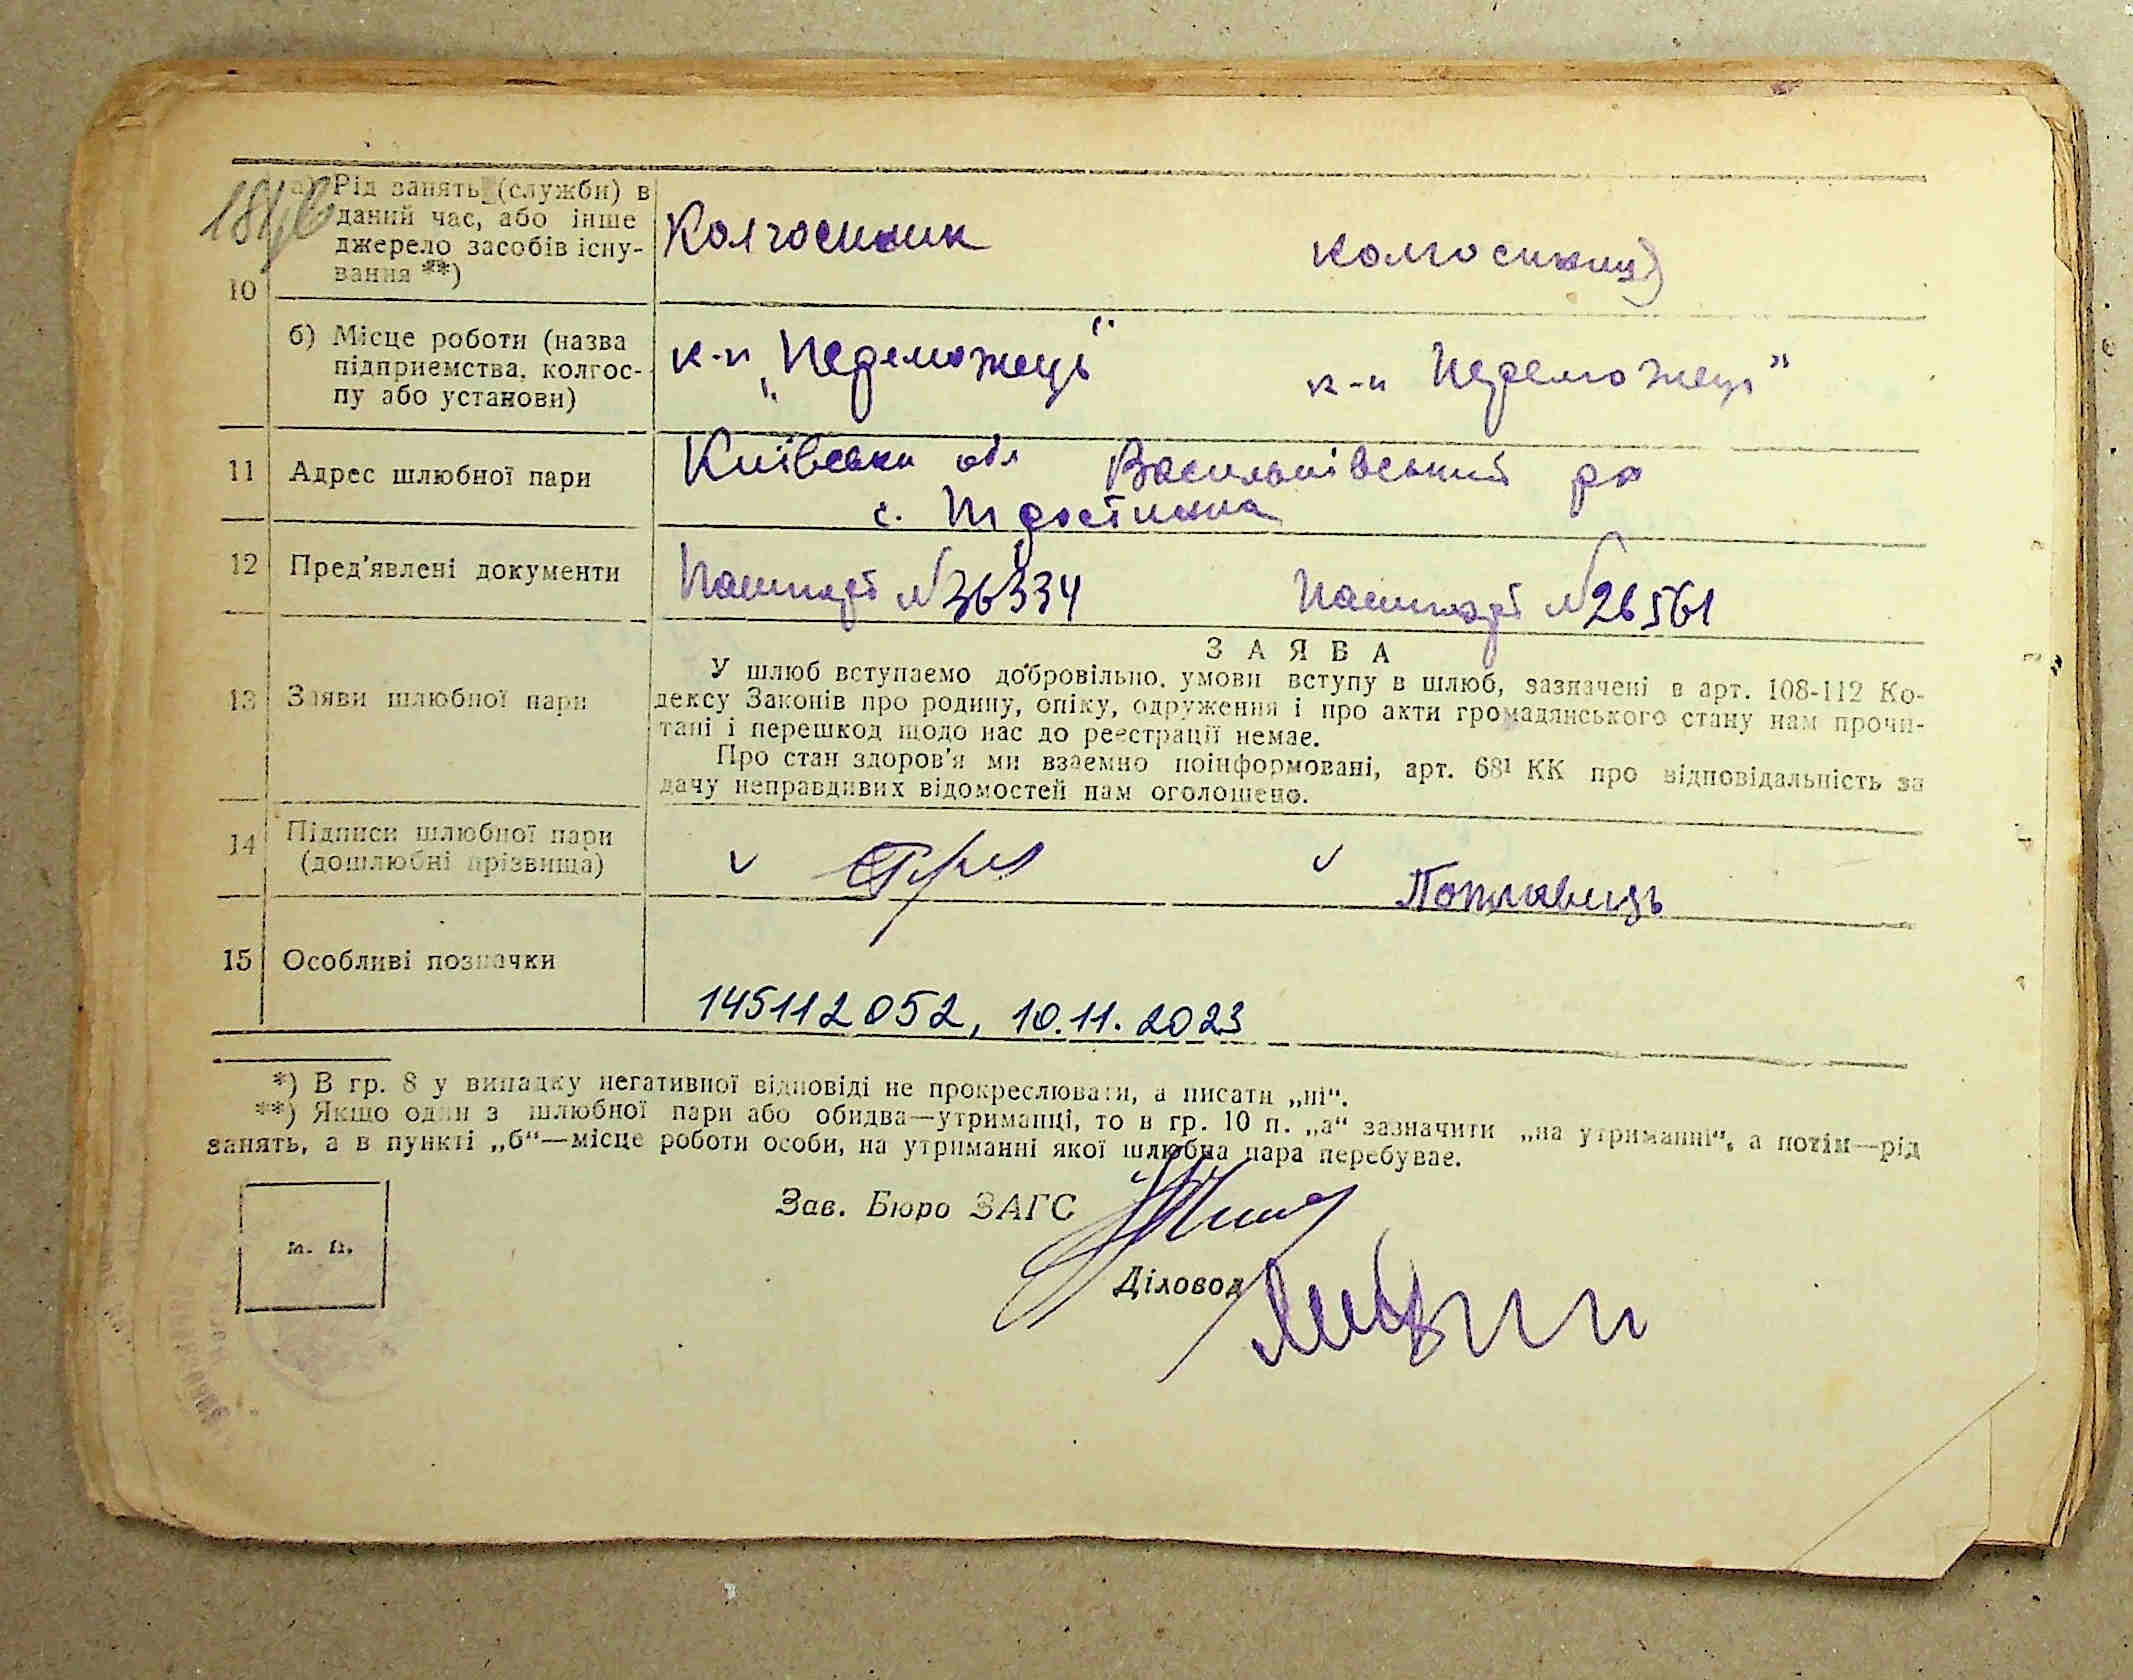 а) Рід занять (служби) в
даний час, або інше
джерело засобів існу-
вання **)
10
Колгоспник
колгоспниця
б) Місце роботи (назва
підприємства, колгос-
пу або установи)
к-п „Переможець“
к-п Переможець”
11 Адрес шлюбної пари
Київська обл Васильківський р-н
с.
12 Пред'явлені документи
Пашпорт №36334
Пашпорт №26561
13 Заяви шлюбної пари
ЗАЯВА
У шлюб вступаємо добровільно, умови вступу в шлюб, зазначені в арт. 108-112 Ко-
дексу Законів про родину, опіку, одруження і про акти громадянського стану нам прочи-
тані і перешкод щодо нас до реєстрації немає.
Про стан здоров'я ми взаємно поінформовані, арт. 68¹ КК про відповідальність за
дачу неправдивих відомостей нам оголошено.
14 Підписи шлюбної пари
(дошлюбні прізвища)
15 Особливі позначки
145112052, 10.11.2023
*) В гр. 8 у випадку негативної відповіді не прокреслювати, а писати „ні“.
**) Якщо один з шлюбної пари або обидва—утриманці, то в гр. 10 п. „а“ зазначити „на утриманні“, а потім—рід
занять, а в пункті „б“—місце роботи особи, на утриманні якої шлюбна пара перебуває.
Зав. Бюро ЗАГС
м. п.
Діловод